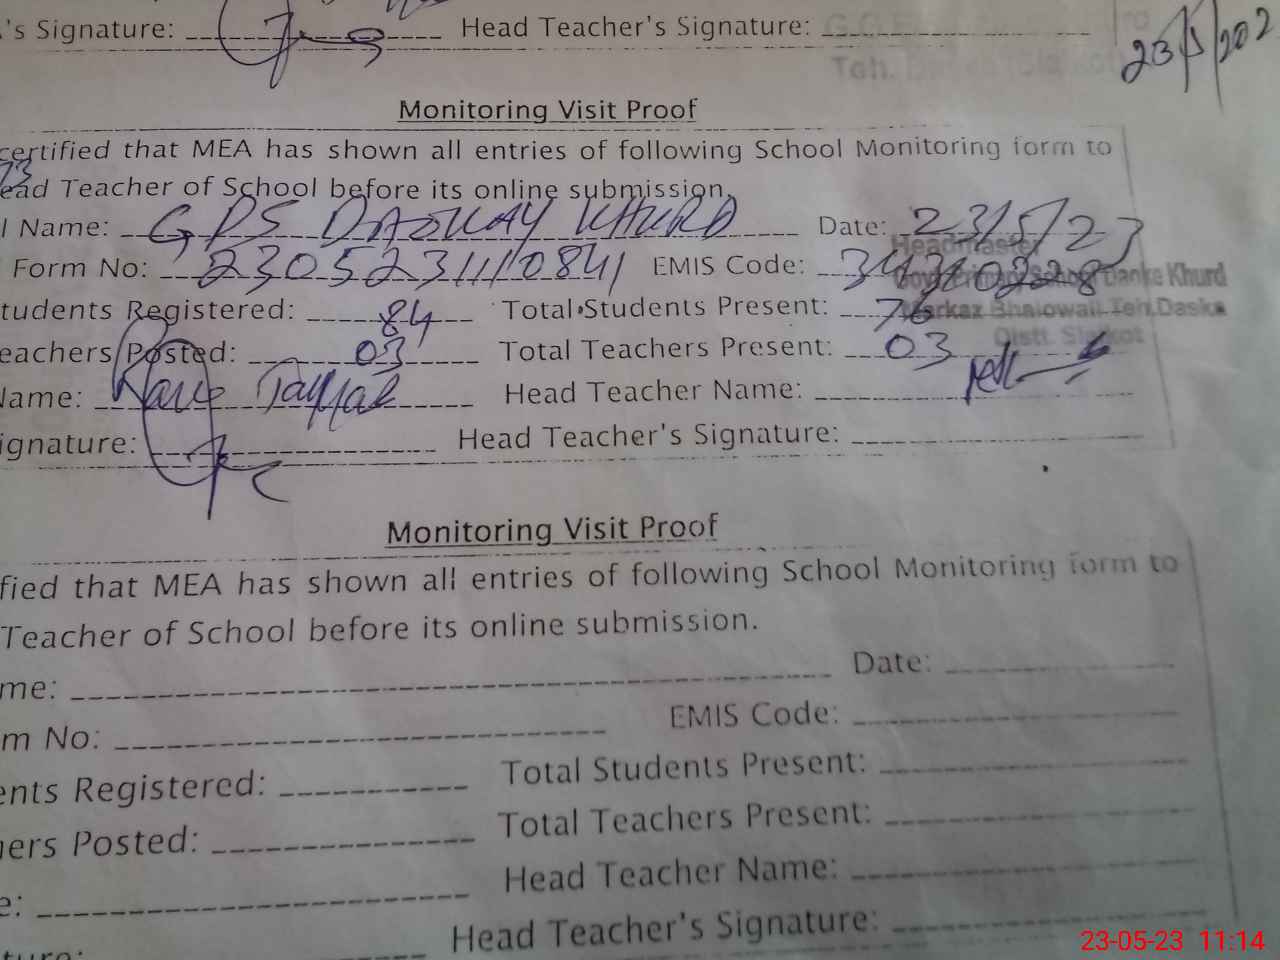 's Signature: Head Teacher's Signature:
23/5/202
Monitoring Visit Proof
certified that MEA has shown all entries of following School Monitoring form to
ead Teacher of School before its online submission.
l Name: GPS KHURD Date: 23/5/23
Headmaster
Form No: EMIS Code:
Govt. Primary School Danke Khurd
tudents Registered: 84 Total Students Present: 76
Markaz Bhalowali Teh. Daska
Distt. Sialkot
eachers Posted: 03 Total Teachers Present: 03
Name: Head Teacher Name:
ignature: Head Teacher's Signature:
Monitoring Visit Proof
fied that MEA has shown all entries of following School Monitoring form to
Teacher of School before its online submission.
me: Date:
m No: EMIS Code:
ents Registered: Total Students Present:
hers Posted: Total Teachers Present:
e: Head Teacher Name:
ture: Head Teacher's Signature:
23-05-23 11:14